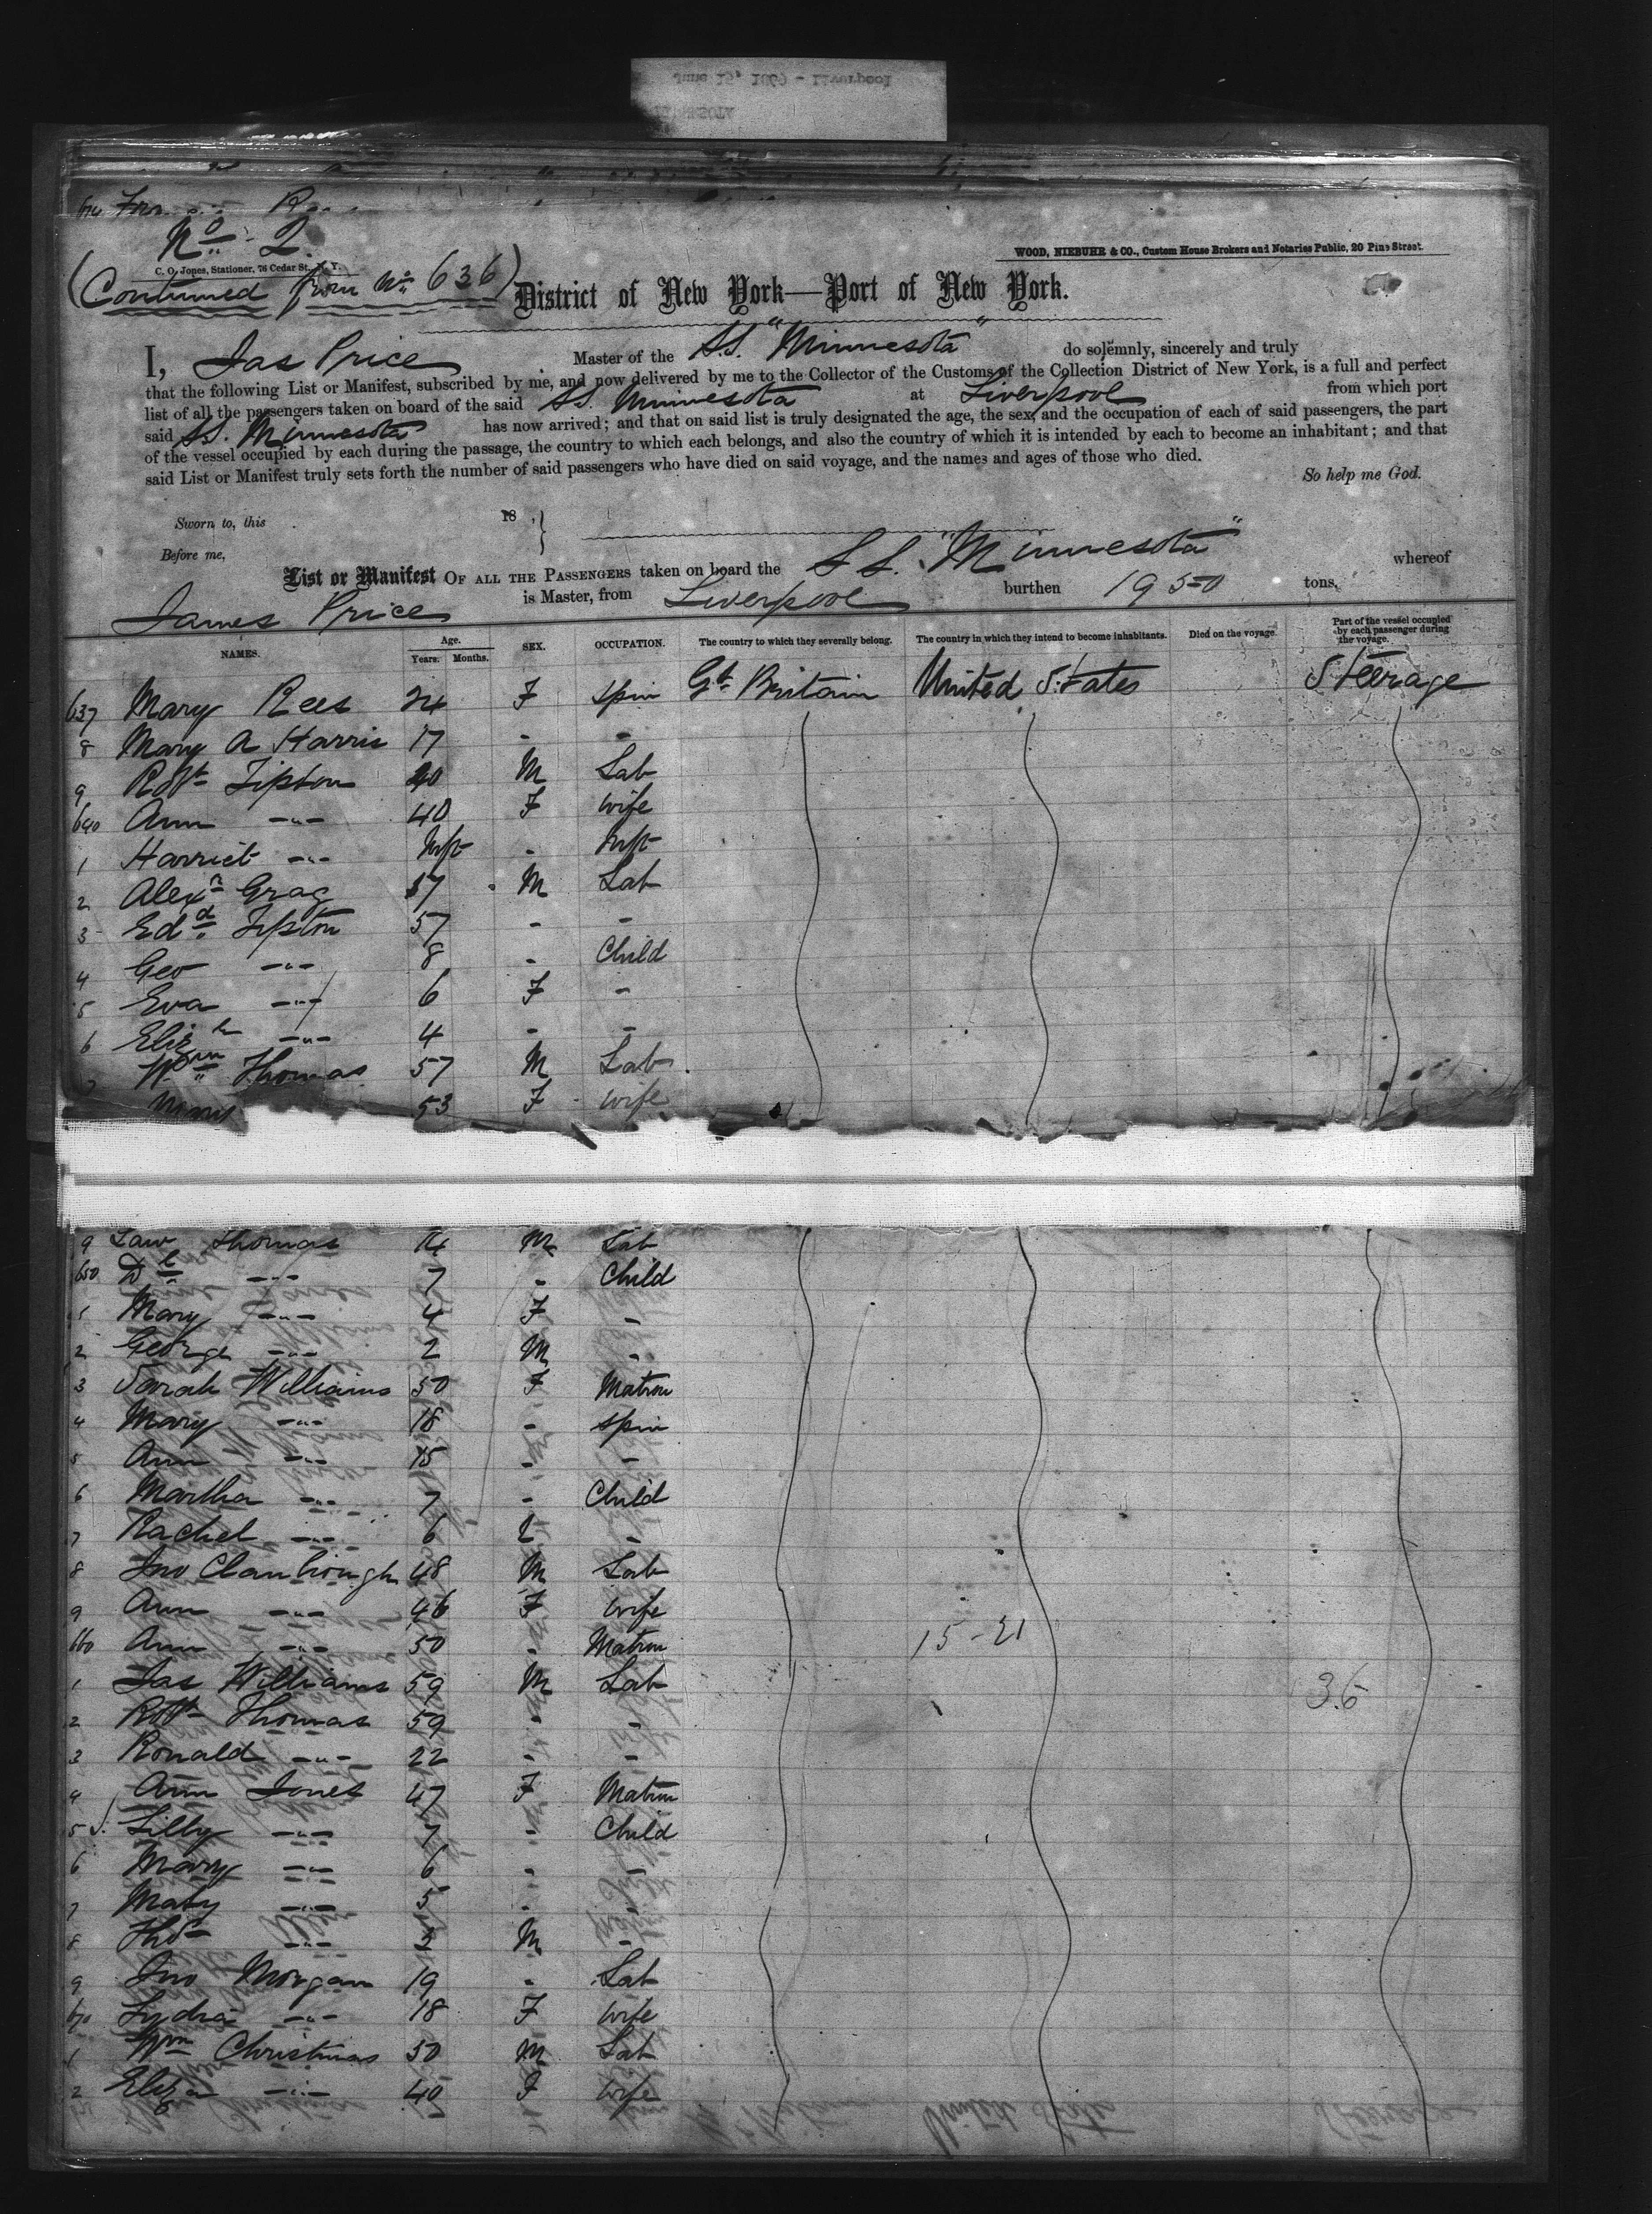 June 15, 1869 - Liverpool
No. 2
WOOD, NIEBUHR & CO., Custom House Brokers and Notaries Public, 20 Pine Street.
C. O. Jones, Stationer, 78 Cedar St., N. Y.
(Continued from No. 636)
District of New York—Port of New York.
I, Jas Price Master of the S.S. "Minnesota" do solemnly, sincerely and truly
that the following List or Manifest, subscribed by me, and now delivered by me to the Collector of the Customs of the Collection District of New York, is a full and perfect
list of all the passengers taken on board of the said SS. Minnesota at Liverpool from which port
said SS. Minnesota has now arrived; and that on said list is truly designated the age, the sex, and the occupation of each of said passengers, the part
of the vessel occupied by each during the passage, the country to which each belongs, and also the country of which it is intended by each to become an inhabitant; and that
said List or Manifest truly sets forth the number of said passengers who have died on said voyage, and the names and ages of those who died.
So help me God.
Sworn to, this 18 ,
Before me,
List or Manifest OF ALL THE PASSENGERS taken on board the S.S. "Minnesota" whereof
James Price is Master, from Liverpool burthen 1950 tons.
NAMES. Age. Years. Months. SEX. OCCUPATION. The country to which they severally belong. The country in which they intend to become inhabitants. Died on the voyage. Part of the vessel occupied by each passenger during the voyage.
637 Mary Rees 24 F spin Gt. Britain United States Steerage
8 Mary A Harris 17 - -
9 Robt Tipton 40 M Lab
640 Ann -"- 40 F wife
1 Harriet -"- Inft - Inft
2 Alexr Grag 17 M Lab
3 Edd Tipton 57 - -
4 Geo -"- 8 - Child
5 Eva -"- 6 F -
6 Elizh -"- 4 - -
7 Wm Thomas 57 M Lab
Mary 53 F wife
9 Law Thomas 14 M Lab
650 Dl -"- 7 - Child
1 Mary -"- 4 F -
2 George -"- 2 M -
3 Sarah Williams 50 F Matron
4 Mary -"- 18 - spin
5 Ann -"- 15 - -
6 Martha -"- 7 - Child
7 Rachel -"- 6 -
8 Jno 48 M Lab
9 Ann -"- 46 F wife
660 Ann -"- 50 - Matron
15-21
1 Jas Williams 59 M Lab
36
2 Robt Thomas 59 - -
3 Ronald -"- 22 - -
4 Ann Jones 47 F Matron
5 Lilly -"- 7 - Child
6 Mary -"- 6 - -
7 Maty -"- 5 - -
8 Thos -"- 3 M -
9 Jno Morgan 19 - Lab
670 Lydia -"- 18 F wife
1 Wm Christmas 50 M Lab
2 Eliza -"- 40 F wife